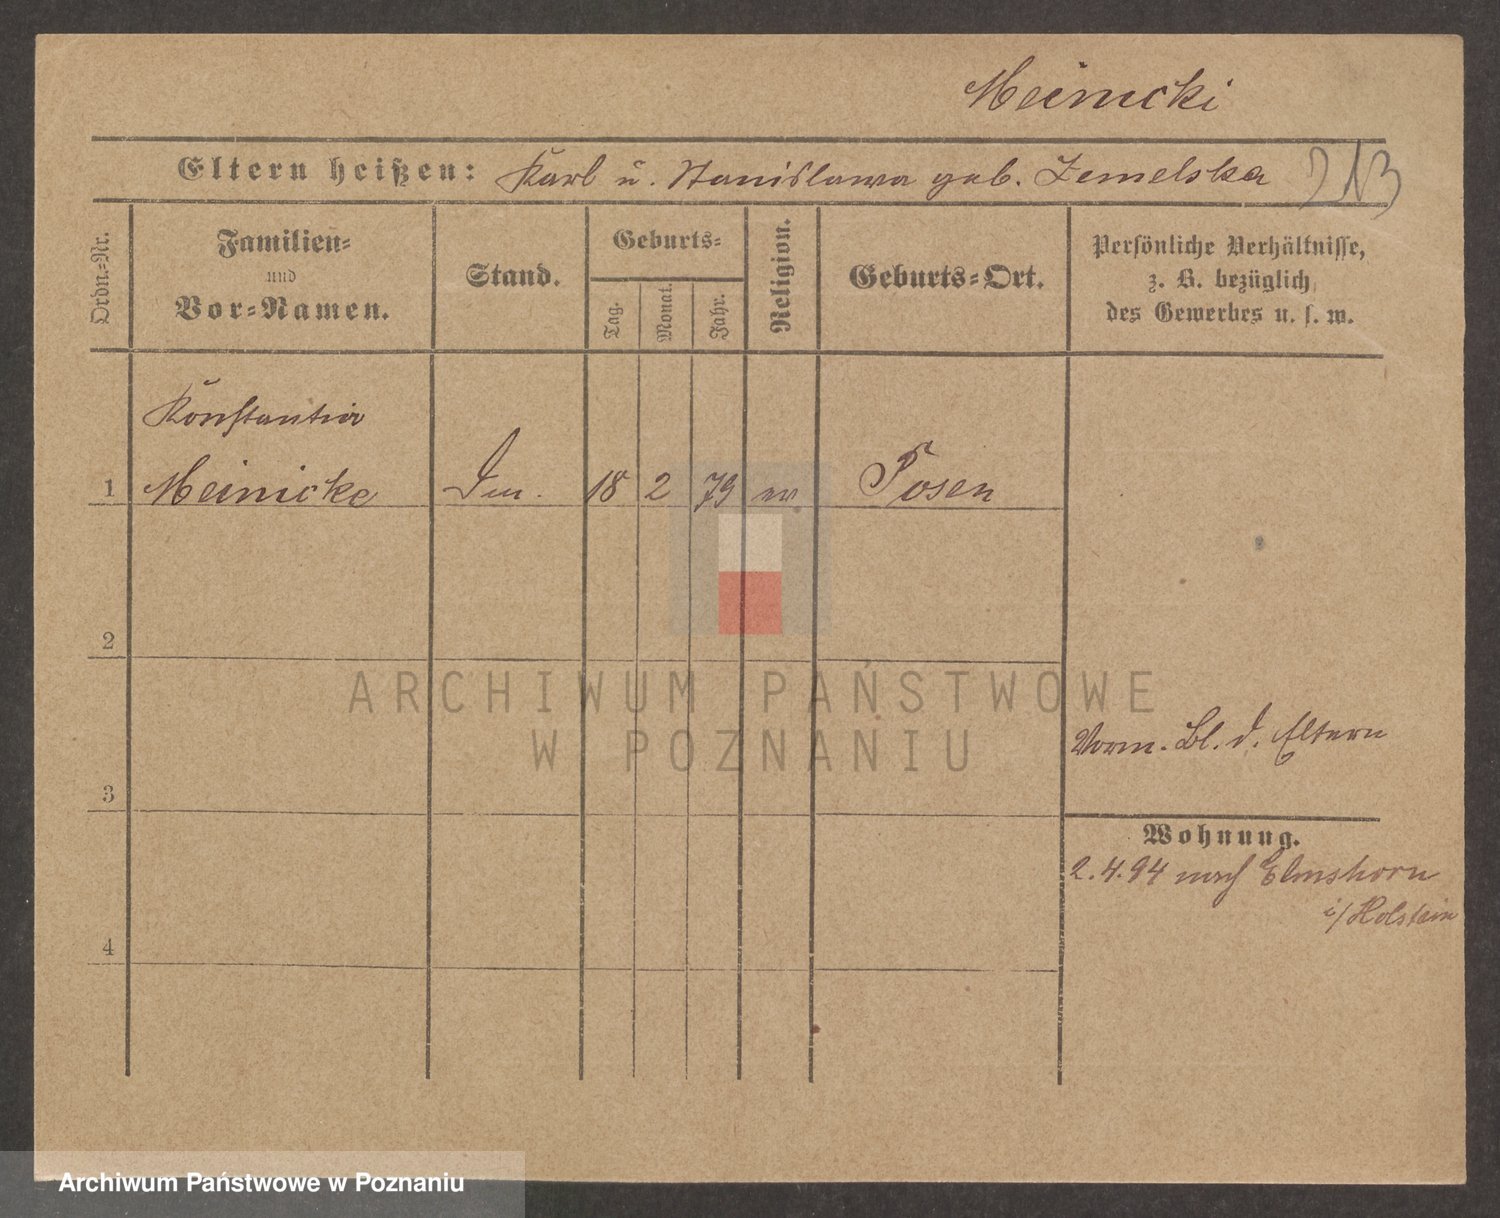 Meinicki
Eltern heißen: Karl u. Stanislawa geb. Zemelska 213
Ordn.-Nr.
Familien-
und
Vor-Namen.
Stand.
Geburts-
Tag.
Monat.
Jahr.
Religion.
Geburts-Ort.
Persönliche Verhältnisse,
z. B. bezüglich
des Gewerbes u. s. w.
Konstantin
1 Meinicke 18 2 79 ev Posen
2
3
4
Vorm. Bl. d. Eltern
Wohnung.
2.4.94 nach Elmshorn
i/Holstein
ARCHIWUM PAŃSTWOWE
W POZNANIU
Archiwum Państwowe w Poznaniu